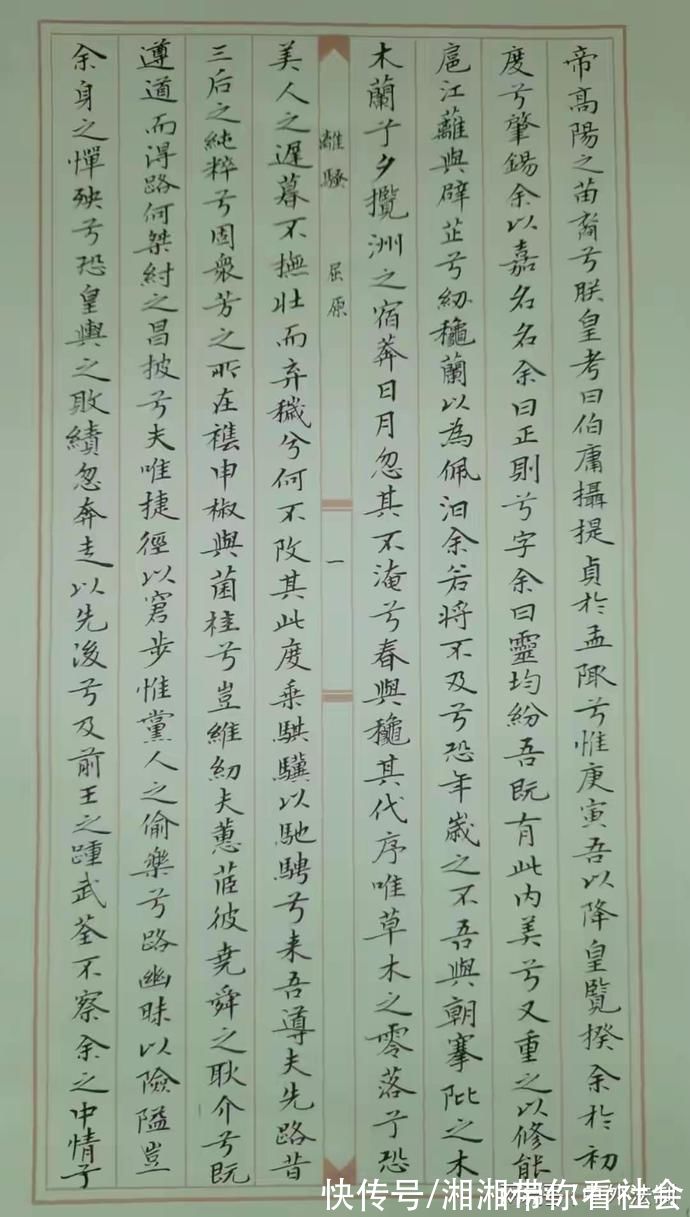 帝高陽之苗裔兮朕皇考曰伯庸攝提貞於孟陬兮惟庚寅吾以降皇覽揆余於初
度兮肇錫余以嘉名名余曰正則兮字余曰靈均紛吾既有此内美兮又重之以修能
扈江蘺與辟芷兮紉穐蘭以為佩汩余若將不及兮恐年歲之不吾與朝搴阰之木
木蘭兮夕攬洲之宿莽日月忽其不淹兮春與穐其代序唯草木之零落兮恐
離騷 屈原
一
美人之遲暮不撫壯而弃穢兮何不改其此度乗騏驥以馳騁兮来吾導夫先路昔
三后之純粹兮固衆芳之所在襍申椒與菌桂兮豈維紉夫蕙茝彼堯舜之耿介兮既
遵道而得路何桀紂之昌披兮夫唯捷徑以窘步惟黨人之偷樂兮路幽昧以險隘豈
余身之憚殃兮恐皇輿之敗績忽奔走以先後兮及前王之踵武荃不察余之中情兮
快传号/湘湘带你看社会